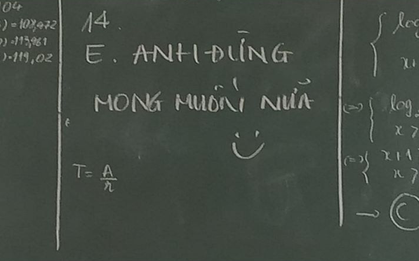 04
)=108,472
)=113,961
)=119,02
14.
E. ANH ĐỪNG
MONG MUỐN NỮA
T = A/r
log
x+
(=) log
x >
(=) x+1
x >
→ C